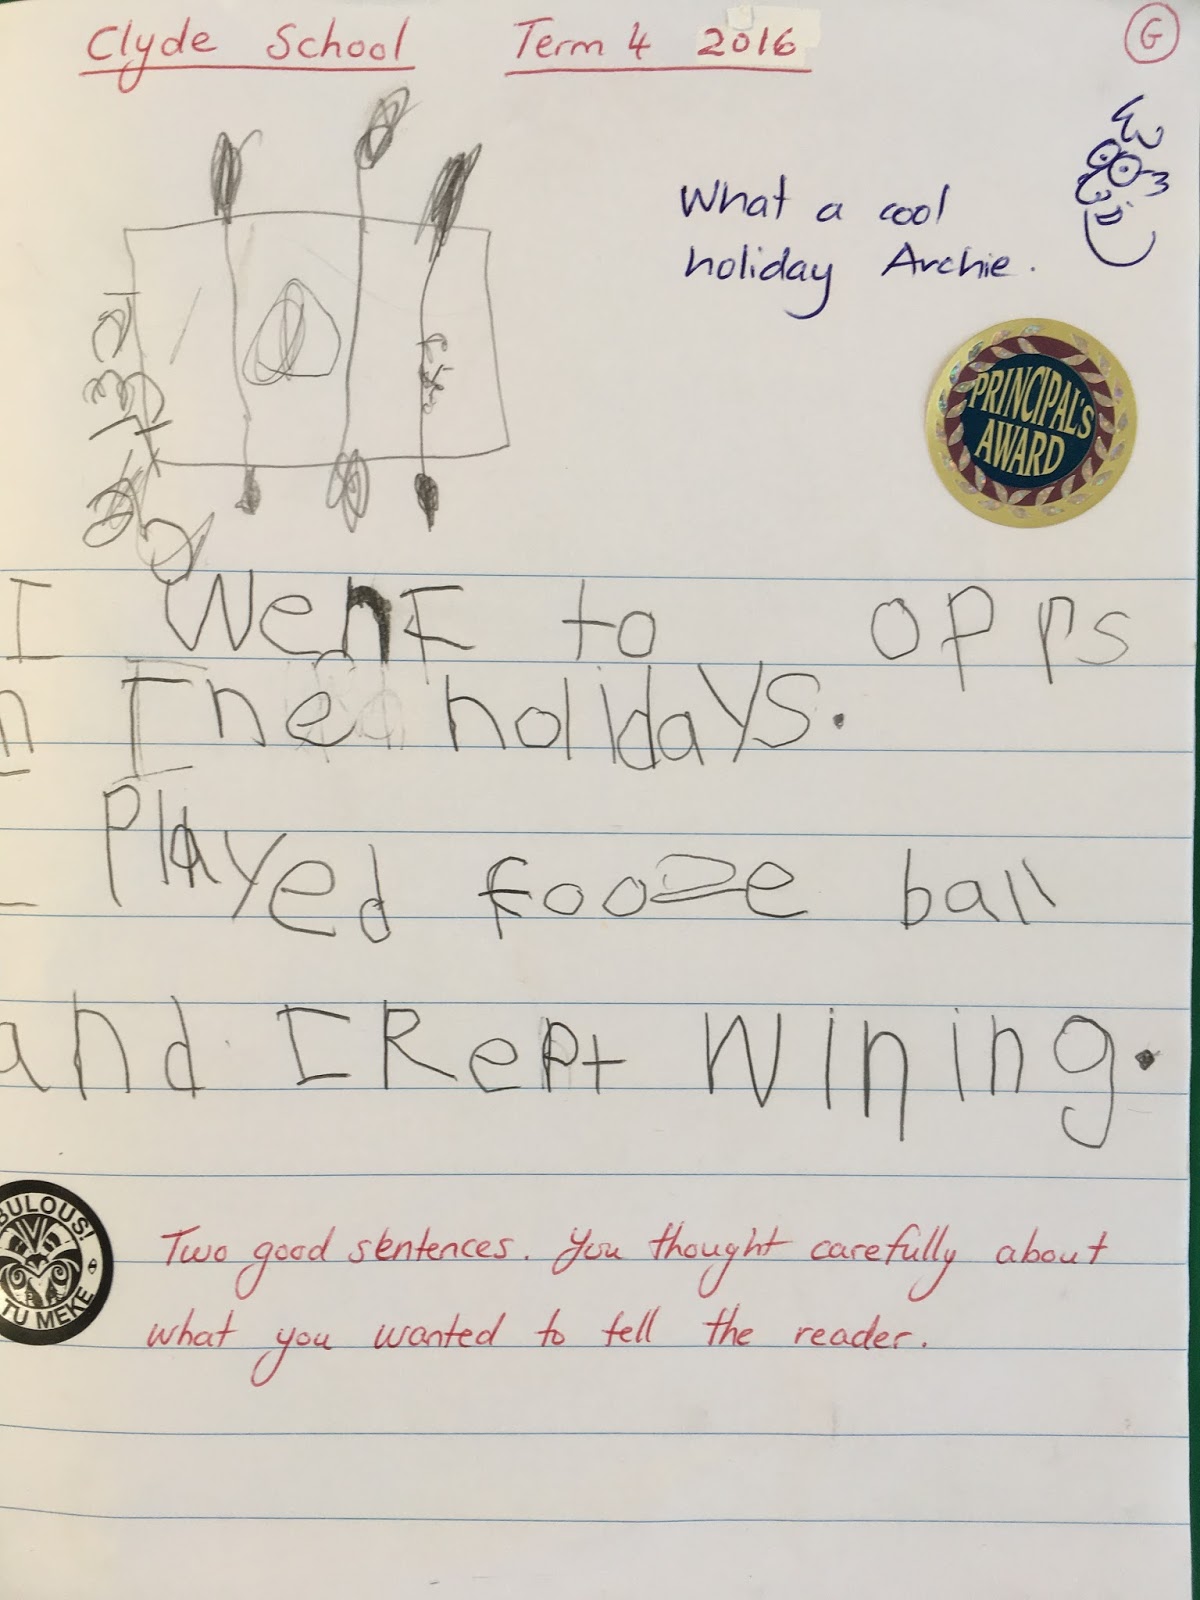 Clyde School Term 4 2016
G
What a cool
holiday Archie.
PRINCIPAL'S
AWARD
I Went to opps
n The holidays.
Played fooze ball
and I Kept wining.
BULOUS!
TU MEKE
Two good sentences. You thought carefully about
what you wanted to tell the reader.